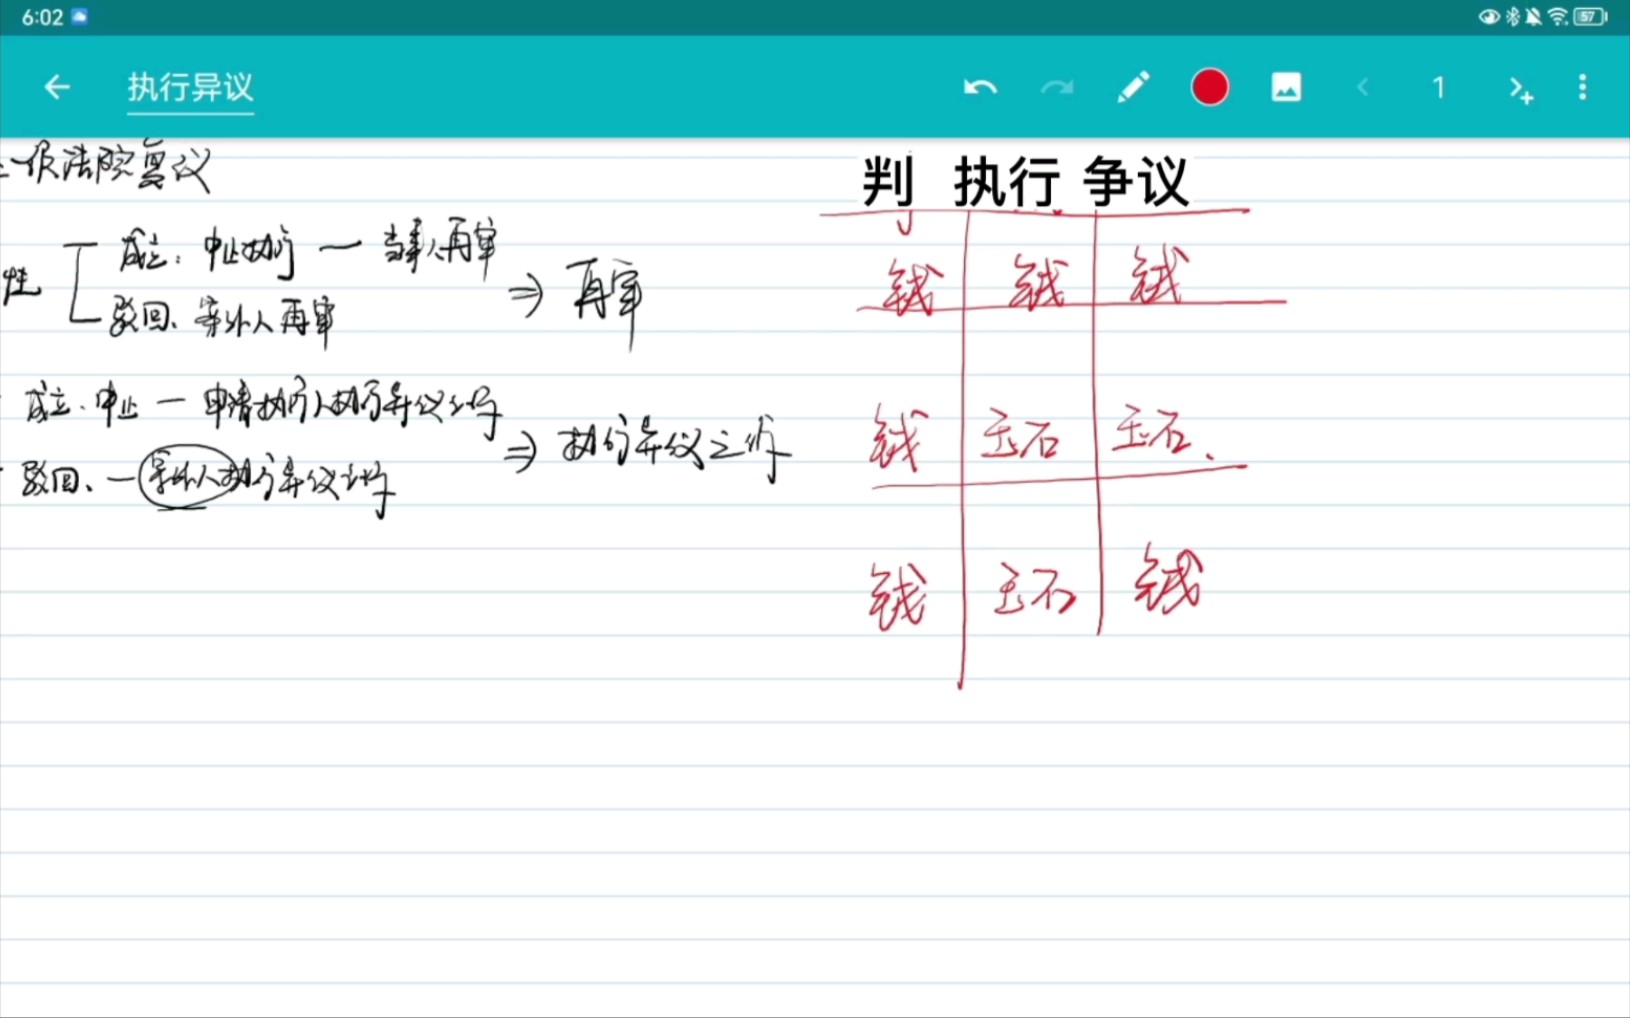 6:02
57
执行异议
1
级法院复议
判 执行 争议
性
成立：中止执行 — 当事人再审
驳回、案外人再审
⇒ 再审
成立.中止 — 申请执行人执行异议之诉
驳回、—案外人执行异议之诉
⇒ 执行异议之诉
钱 钱 钱
钱 玉石 玉石.
钱 玉石 钱